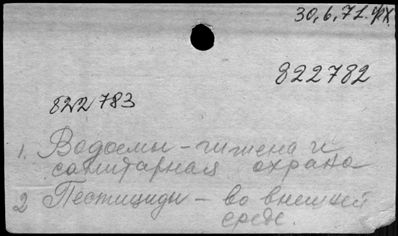 30.6.71. ФХ
822782
822783
1. Водоемы - гигиена и
санитарная охрана
2 Пестициды - во внешней
среде.